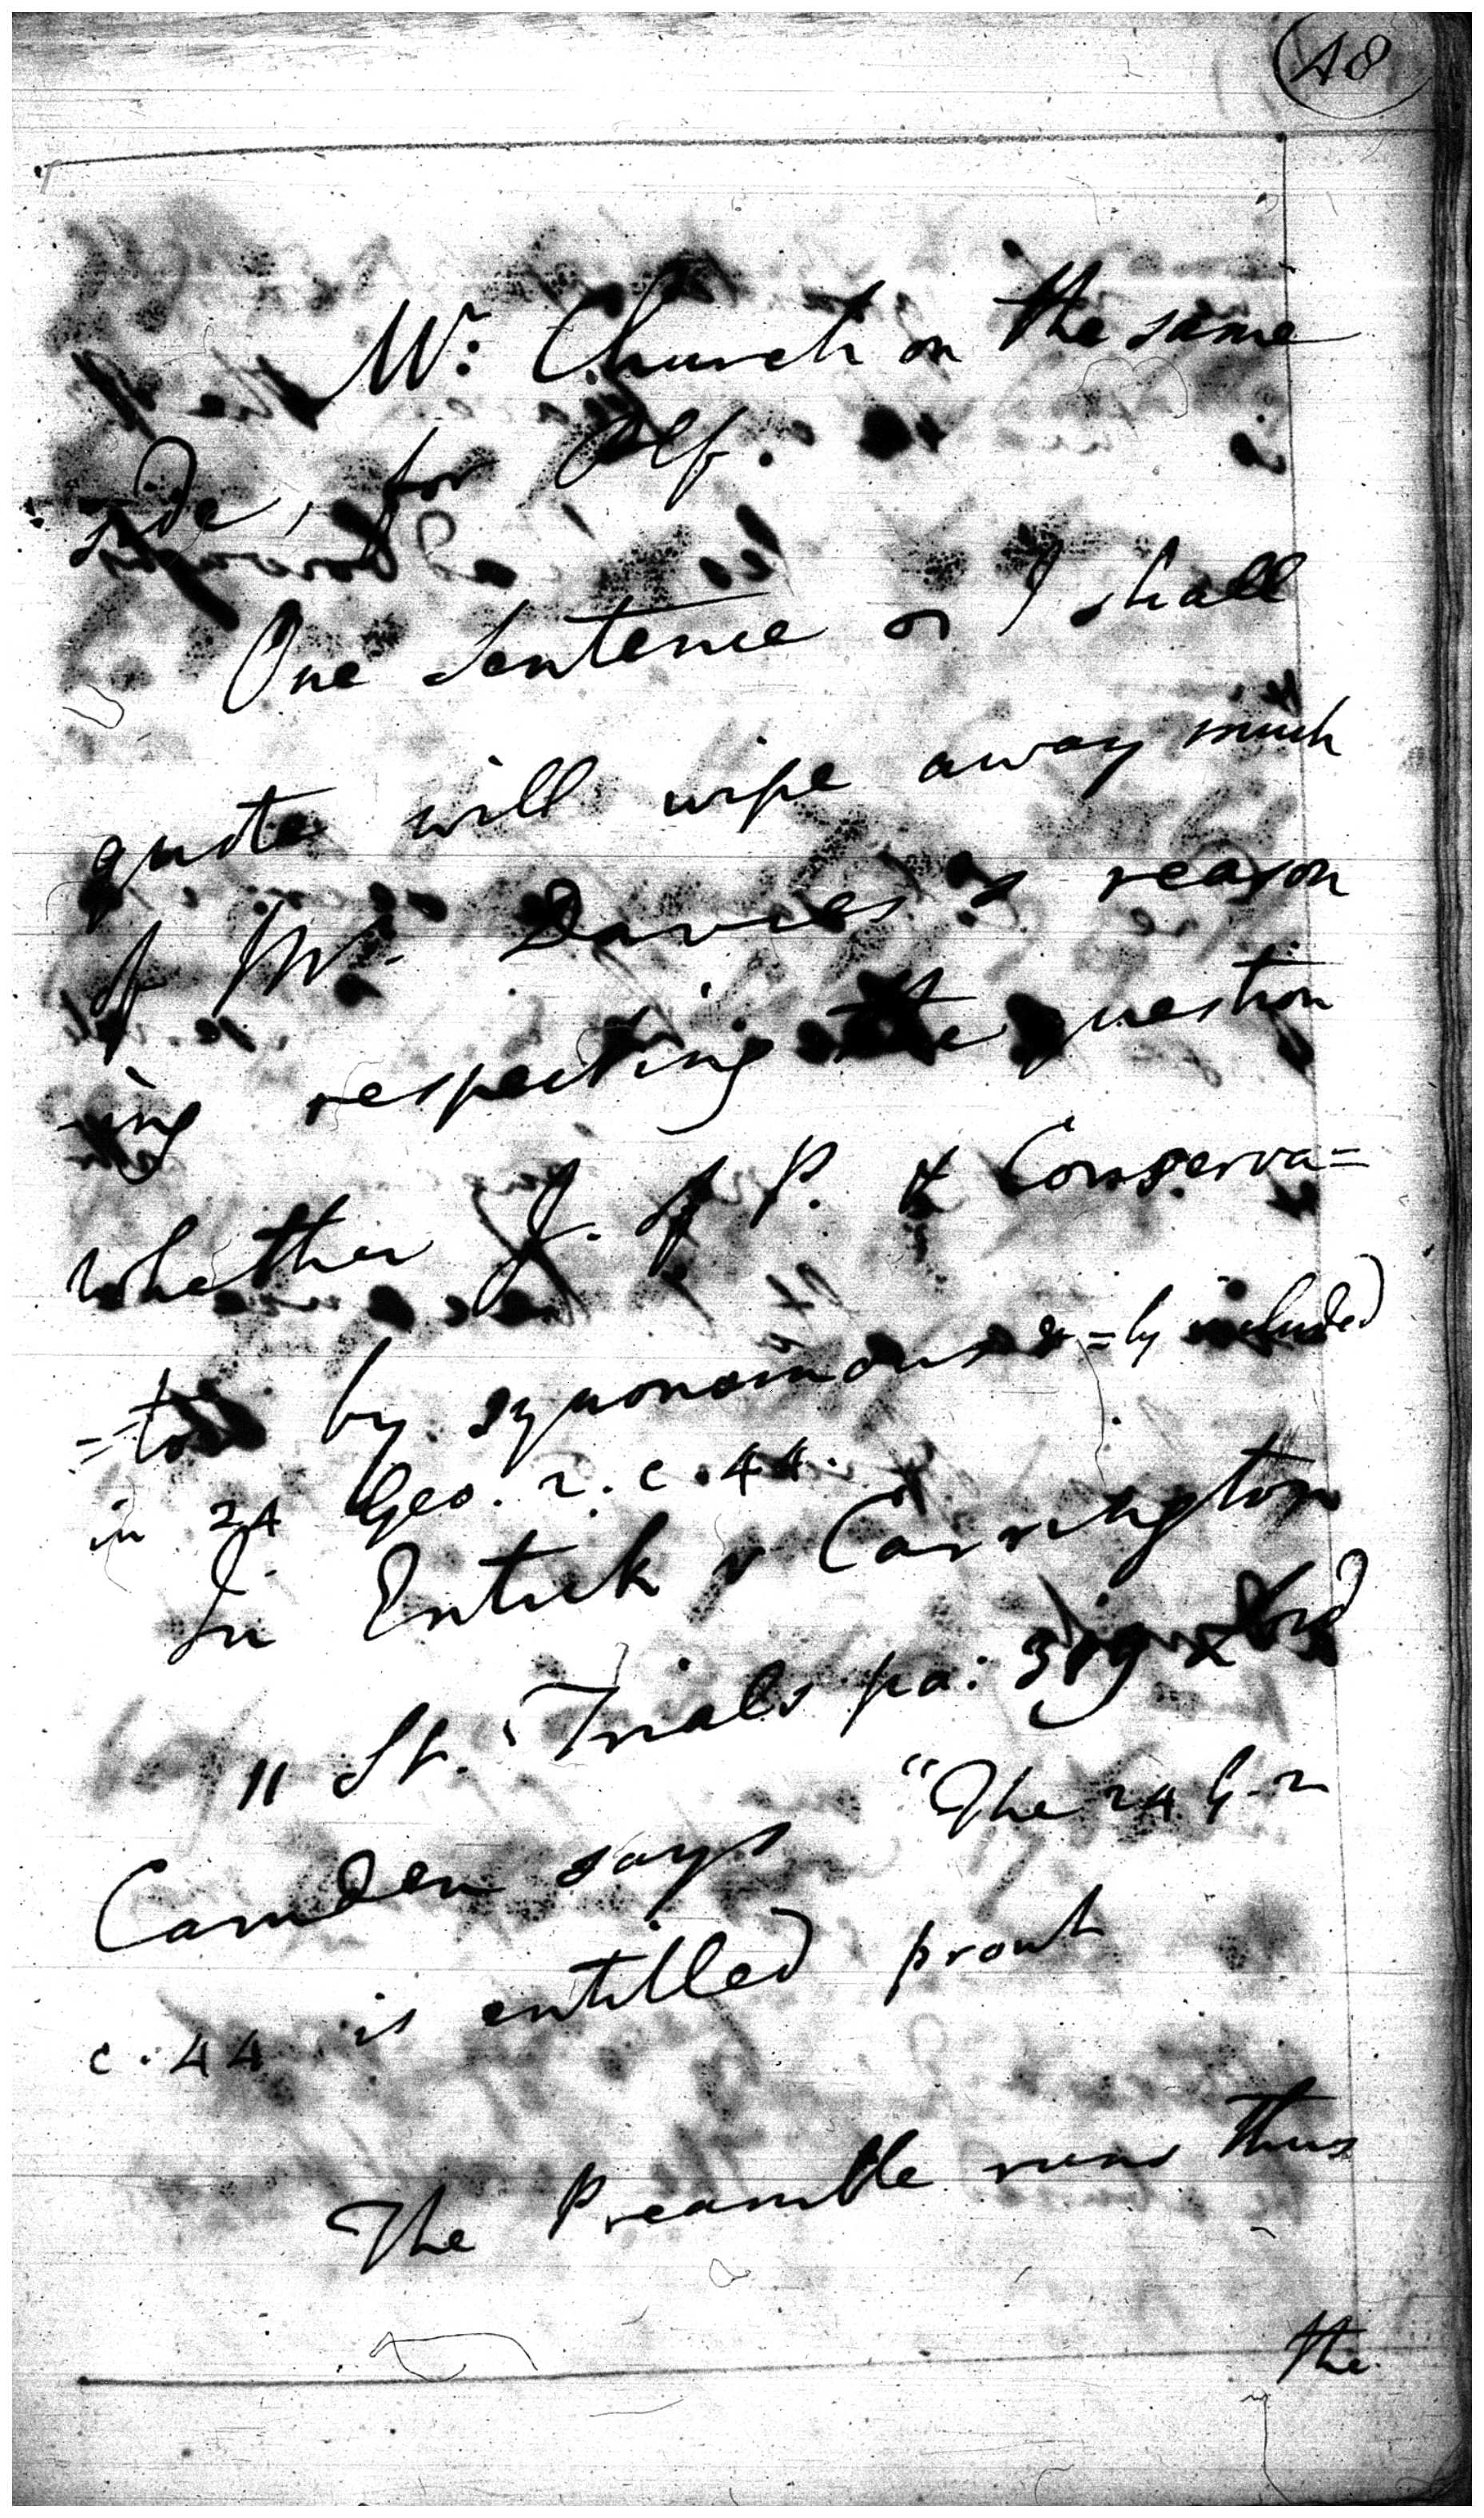 48
Mr: Church on the same
side, for Plf.
One Sentence or I shall
quote will wipe away much
of Mr. Davies's reason
-ing respecting the question
whether J. of P. & Conserva=
=tor by synonomous =ly included
in 24 Geo. 2. c. 44.
In Entick v Carrington
11 St. Trials pa: 319 Lord
Camden says "The 24 G. 2
c. 44 is entitled prout
The Preamble runs thus
the